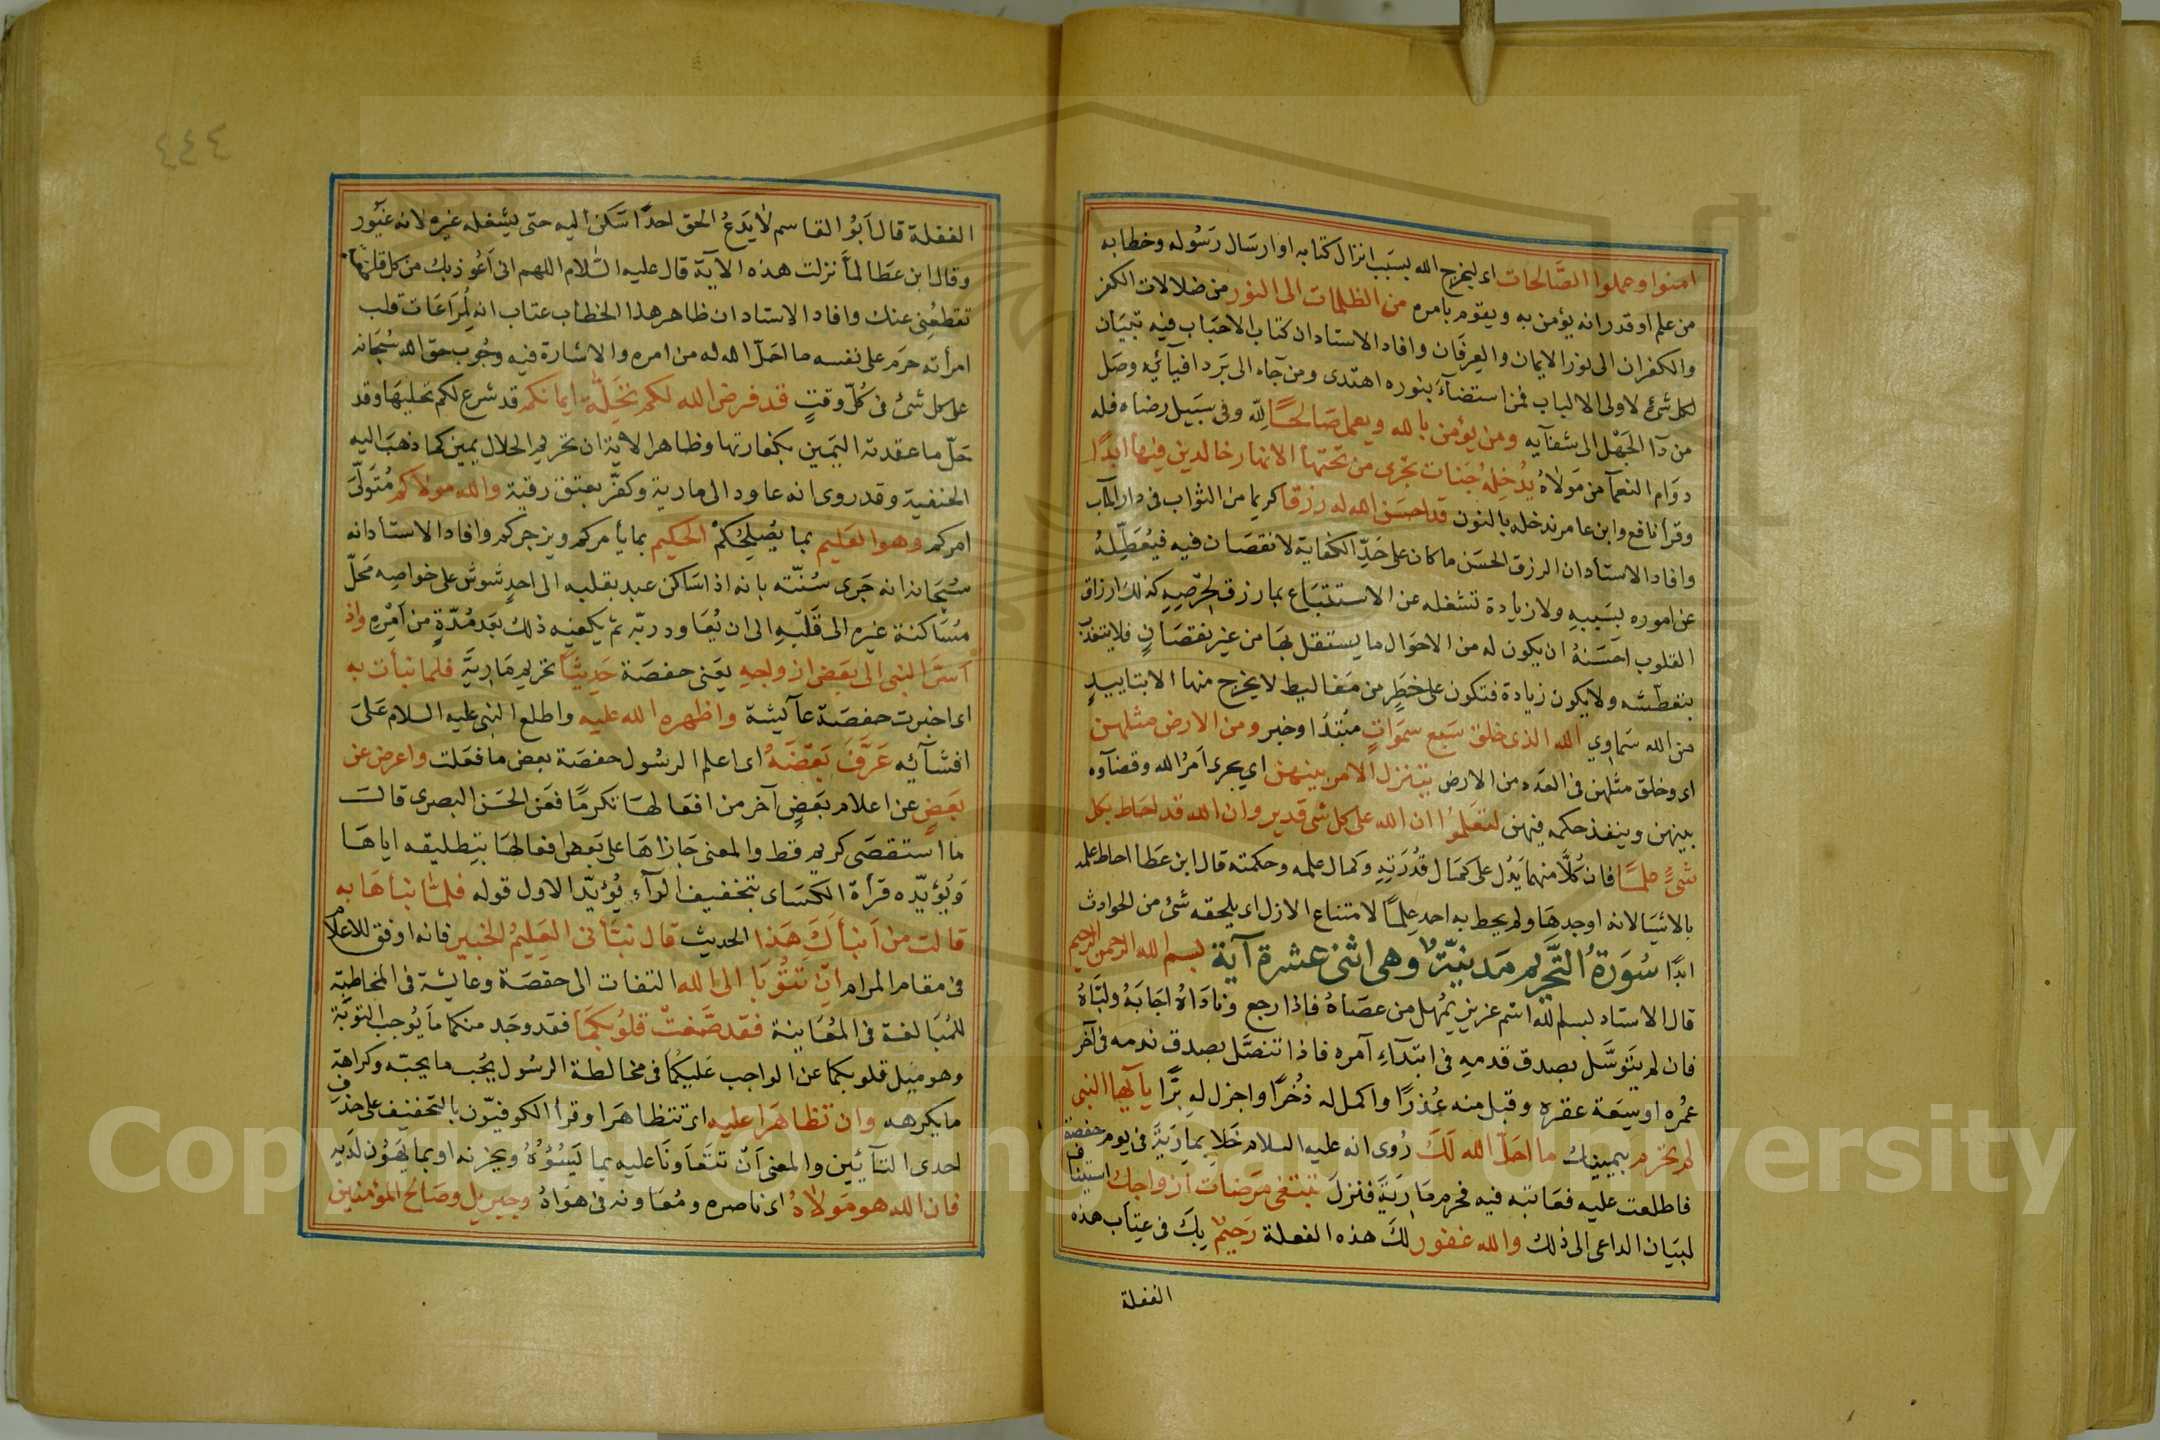 امنوا وعملوا الصالحات اى ليخرج الله بسبب انزال كتابه او ارسال رسوله وخطابه
من علم او قدر انه يؤمن به ويقوم بامره من الظلمات الى النور من ضلالات الكفر
والكفران الى نور الايمان والعرفان وافاد الاستاد ان كتاب الاحباب فيه تبيان
لكل شئ لاولى الالباب فمن استضآء بنوره اهتدى ومن جآء الى برد افيآئه وصل
من دآ الجهل الى شفآيه ومن يؤمن بالله ويعمل صالحا لله وفى سبيل رضاه فله
دوام النعمآ من مولاه يدخله جنات تجرى من تحتها الانهار خالدين فيها ابدًا
وقرأ نافع وابن عامر ندخله بالنون قد احسن الله له رزقا كريما من الثواب فى دار المآب
وافاد الاستأد ان الرزق الحسن ما كان على حدّ الكفاية لا نقصان فيه فيعطّله
عن اموره بسببه ولا زيادة تشغله عن الاستمتاع بما رزق لحرصه كذلك ارزاق
القلوب احسنه ان يكون له من الاحوال ما يستقل بها من غير نقصان فلا
بتعطّشه ولا يكون زيادة فتكون على خطر من مغاليط لا يخرج منها الا بتاييد
من الله سماوي الله الذى خلق سبع سموات مبتدأ وخبر ومن الارض مثلهن
اى وخلق مثلهن فى العدد من الارض يتنزل الامر بينهن اي يجرى امر الله وقضآوه
بينهن وينفذ حكمه فيهن لتعلموا ان الله على كل شى قدير وان الله قد احاط بكل
شئ علما فان كلّا منهما يدل على كمال قدرته وكمال علمه وحكمته قال ابن عطا احاط علمه
بالاشيا لانه اوجدها ولم يحط به احد علمًا لامتناع الازل اى يلحقه شئ من الحوادث
ابدًا سورة التحريم مدنية وهى اثنى عشرة آية بسم الله الرحمن الرحيم
قال الاستاد بسم لله اسم عزيز يمهل من عصاه فاذا رجع وناداه اجابه ولبّاه
فان لم يتوسّل بصدق قدمه فى ابتدآء آمره فاذا تنصّل بصدق ندمه فى آخر
عمره اوسعة غفره وقبل منه عذرًا واكمل له ذخرًا واجزل له برًّا يآ ايها النبى
لم تحرم بيمينك ما احلّ الله لك روى انه عليه السلام خلا بمارية فى يوم حفصة
فاطلعت عليه فعاتبه فيه فحرم مارية فنزل تبتغى مرضات ازواجك استيناف
لبيان الداعى الى ذلك والله غفور لك هذه الفعلة رحيم بك فى عتاب هذه
الغفلة
٤٤٤
الغفلة قال ابو القاسم لا يدع الحق احدًا سكن اليه حتى يشغله غيره لانه غيور
وقال ابن عطا لمّا نزلت هذه الآية قال عليه السّلام اللهم انى اعوذ بك من كل
تقطعنى عنك وافاد الاستاد ان ظاهر هذا الخطاب عتاب انه لمراعات قلب
امرأته حرم على نفسه ما احلّ الله له من امره والاشارة فيه وجوب حق الله سبحانه
على كل شئ فى كلّ وقت قد فرض الله لكم تحلة ايمانكم قد شرع لكم تحليها وقد
حلّ ما عقدته اليمين بكفارتها وظاهر الآية ان تحريم الحلال يمين كما ذهب اليه
الحنفية وقد روى انه عاود الى مارية وكفر بعتق رقبة والله مولاكم متولّى
امركم وهو العليم بما يصلحكم الحكيم بما يأمركم ويزجركم وافاد الاستأد انه
سبحانه انه جرى سنّته بانه اذا ساكن عبد بقلبه الى احد شوش على خواصه محلّ
مساكنة غيره الى قلبه الى ان يعاود ربّه ثم يكفيه ذلك بعد مدّة من امره واذ
اسرّ النبى الى بعض ازواجه يعنى حفصة حديثًا تحريم مارية فلما نبأت به
اى اخبرت حفصة عآيشة واظهره الله عليه واطلع النبى عليه السلام على
افشآئه عرّف بعضه اى اعلم الرسول حفصة بعض ما فعلت واعرض عن
بعض عن اعلام بعض آخر من افعالها تكرمًا فعن الحسن البصرى قالت
ما استقصى كريم قط والمعنى جازاها على بعض افعالها بتطليقه اياها
ويؤيّده قرأة الكساى بتخفيف الرآء يؤيّد الاول قوله فلمّا نبأها به
قالت من انبأك هذا الحديث قال نبّأنى العليم الخبير فانه اوفق للاعلام
فى مقام المرام ان تتوبا الى الله التفات الى حفصة وعايشة فى المخاطبة
للمبالغة فى المعاتبة فقد صغت قلوبكما فقد وجد منكما ما يوجب التوبة
وهو ميل قلوبكما عن الواجب عليكما فى مخالطة الرسول بحب ما يحبّه وكراهة
ما يكرهه وان تظاهرا عليه اى تتظاهرا وقرأ الكوفيّون بالتخفيف على حذف
احدى التآئين والمعنى ان تتعاونا عليه بما يسؤوه ويحزنه او بما يهون لديه
فان الله هو مولاه اى ناصره ومعاونه فى هواه وجبريل وصالح المؤمنين
Copyright © King Saud University